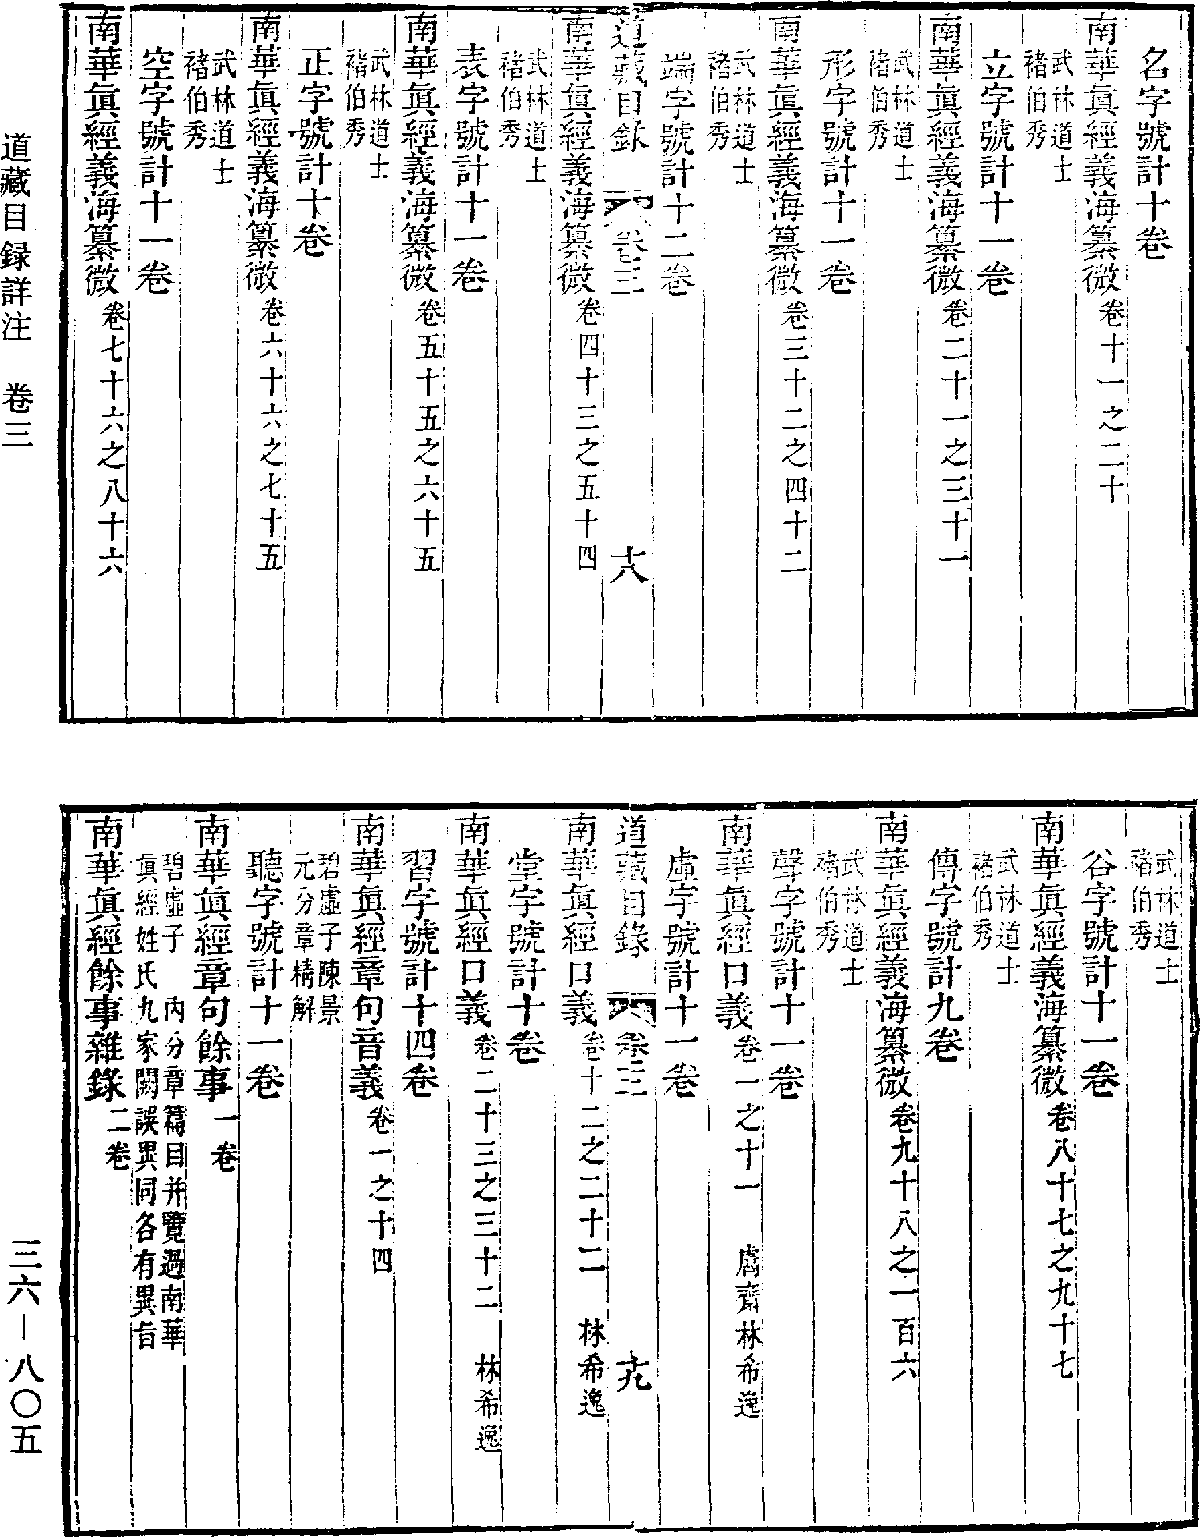 名字號計十卷
南華眞經義海纂微卷十一之二十
武林道士
褚伯秀
立字號計十一卷
南華眞經義海纂微卷二十一之三十一
武林道士
褚伯秀
形字號計十一卷
南華眞經義海纂微卷三十二之四十二
武林道士
褚伯秀
端字號計十二卷
道藏目錄 卷三 十八
南華眞經義海纂微卷四十三之五十四
武林道士
褚伯秀
表字號計十一卷
南華眞經義海纂微卷五十五之六十五
武林道士
褚伯秀
正字號計十卷
南華眞經義海纂微卷六十六之七十五
武林道士
褚伯秀
空字號計十一卷
南華眞經義海纂微卷七十六之八十六
道藏目録詳注 卷三
武林道士
褚伯秀
谷字號計十一卷
南華眞經義海纂微卷八十七之九十七
武林道士
褚伯秀
傳字號計九卷
南華眞經義海纂微卷九十八之一百六
武林道士
褚伯秀
聲字號計十一卷
南華眞經口義卷一之十一 鬳齋林希逸
虛字號計十一卷
道藏目錄 卷三 十九
南華眞經口義卷十二之二十二 林希逸
堂字號計十卷
南華眞經口義卷二十三之三十二 林希逸
習字號計十四卷
南華眞經章句音義卷一之十四
碧虛子陳景
元分章精解
聽字號計十一卷
南華眞經章句餘事一卷
碧虛子 內分章篇目并覽過南華
眞經姓氏九家闕誤異同各有異旨
南華眞經餘事雜錄二卷
三六—八〇五